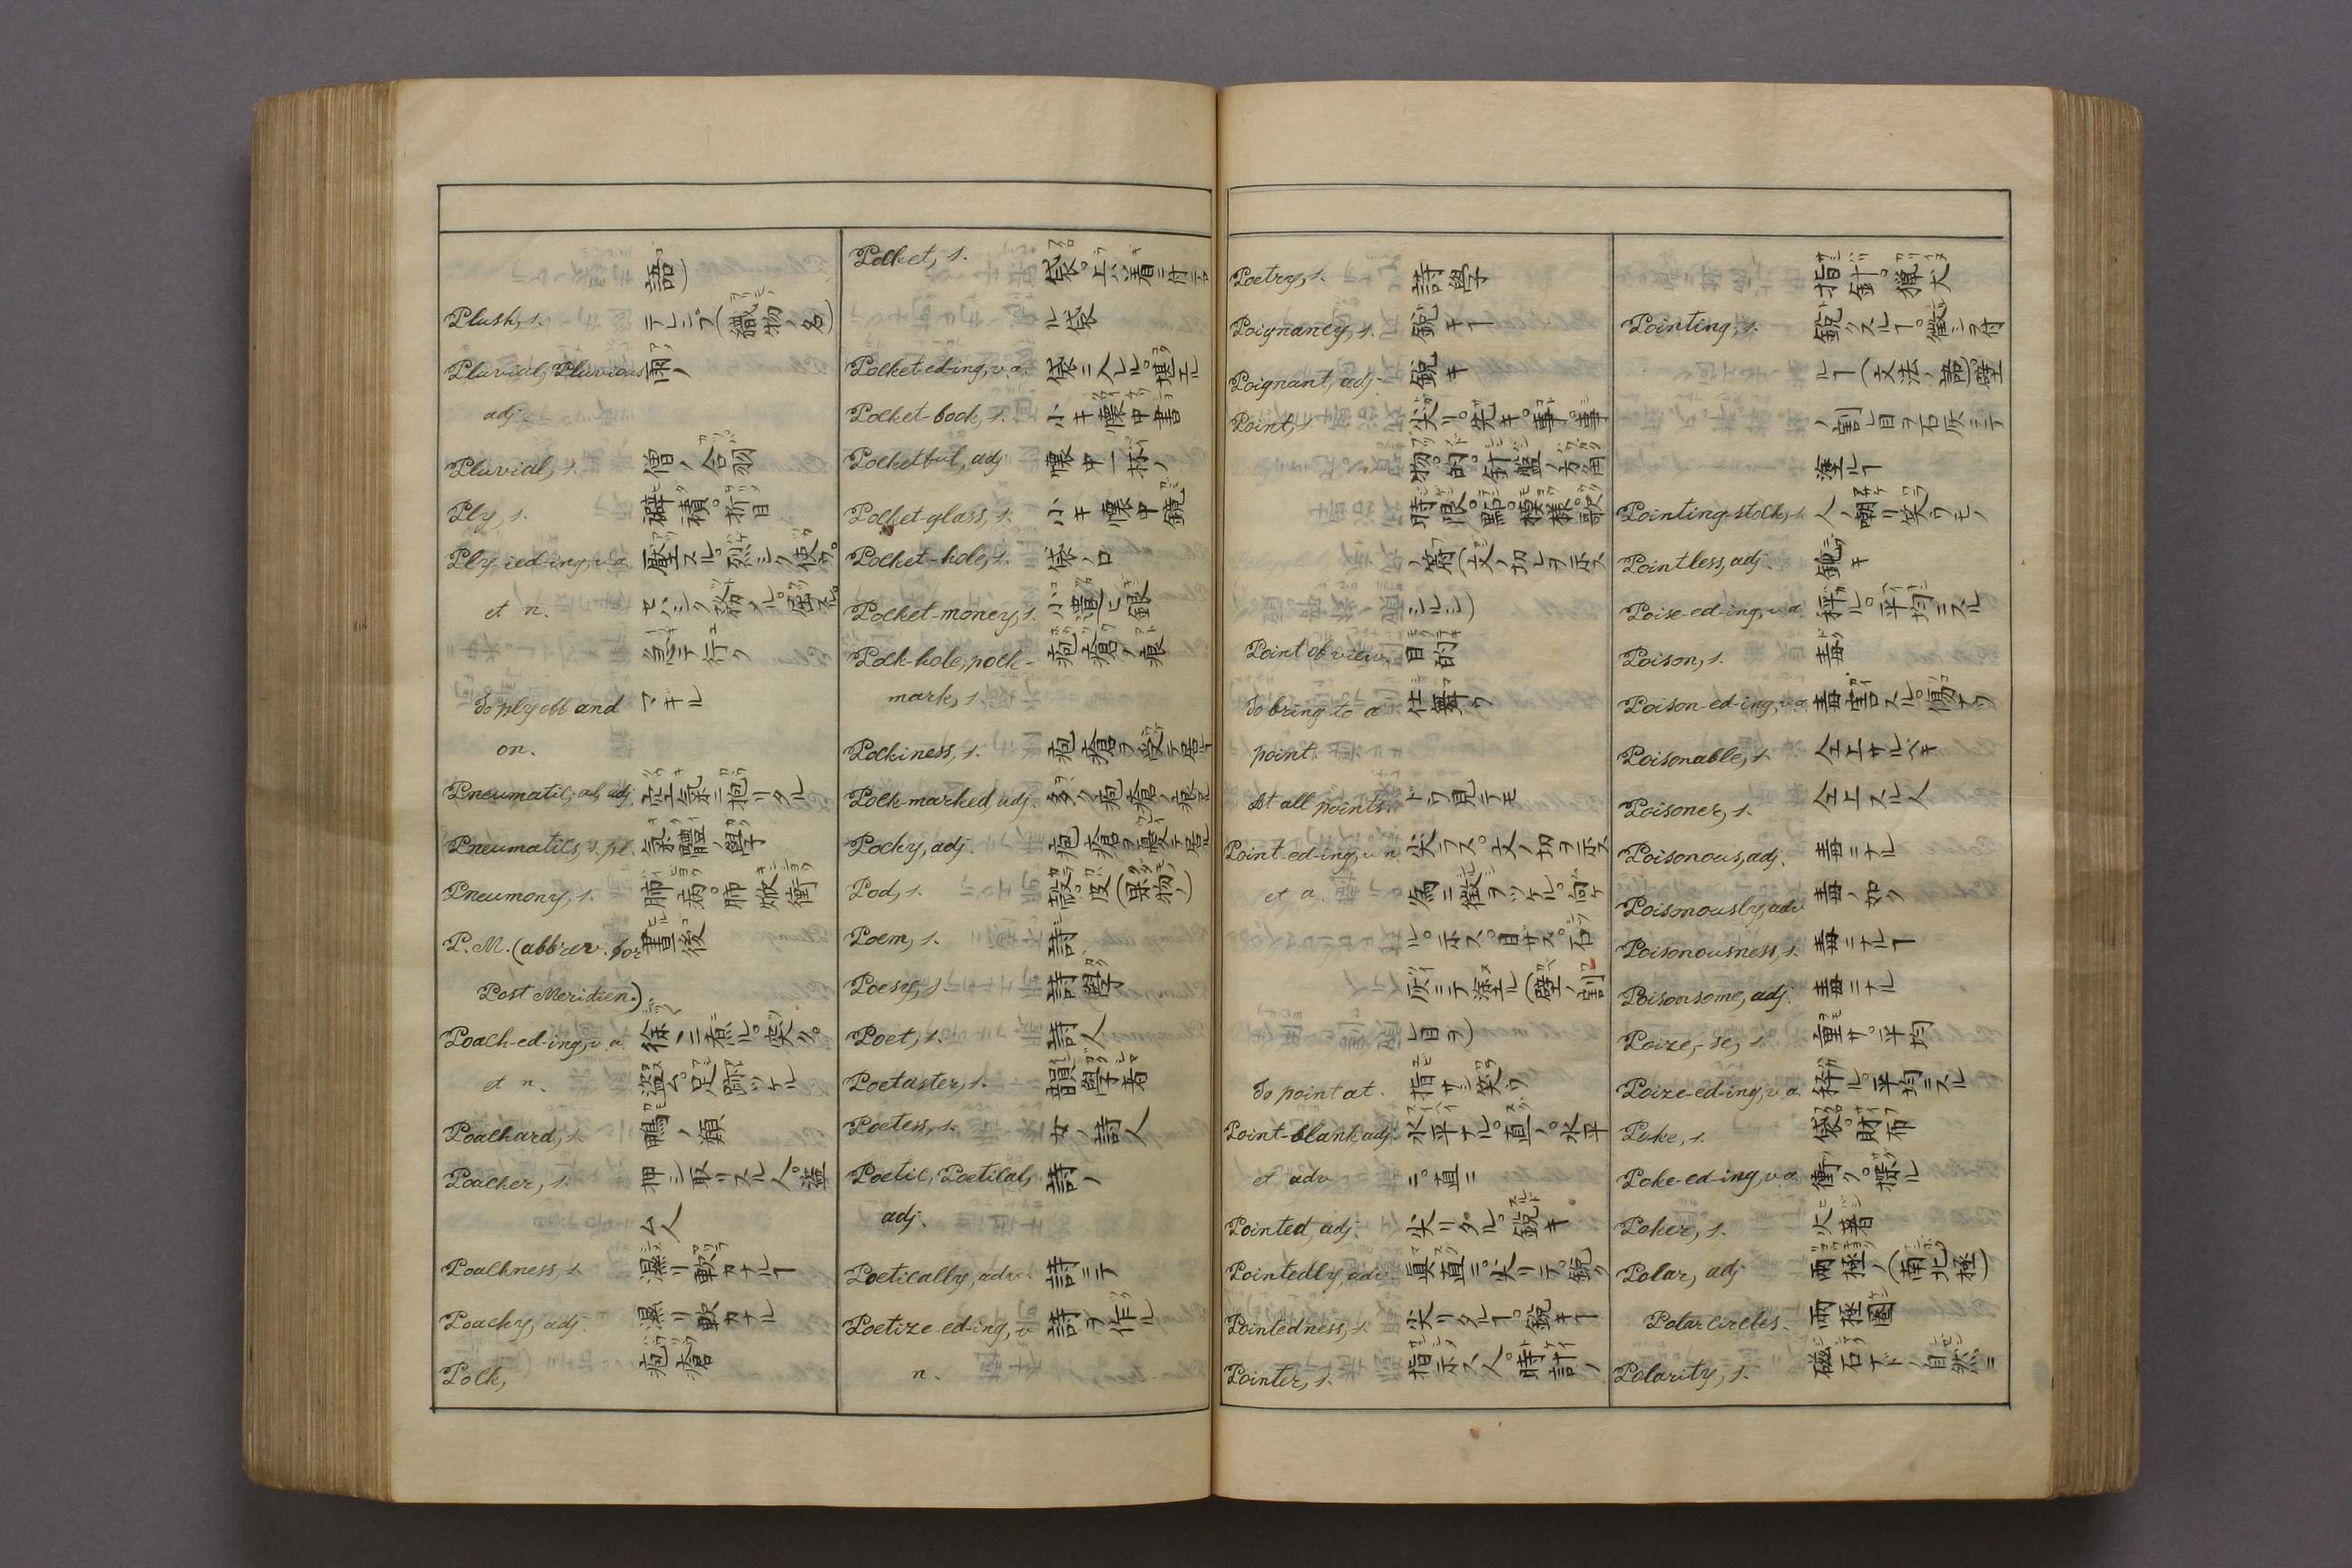 語)
Plush, s. テレシプ(織物ノ名)
Pluvial, Pluvious 雨ノ
adj.
Pluvial, s. 僧ノ合羽
Ply, s. 襞積。折目
Ply, ied-ing, v.a. 壓スル。烈シク使フ。
et n. セハシク務ル。
急テ行ク
To ply off and マギル
on.
Pneumatic,-al, adj. 空氣ニ拘リタル
Pneumatics, s. pl. 氣體ノ學
Pneumony, s. 肺病。肺焮衝
P. M. (abbrev. for 晝後
Post Meridien.)
Poach-ed-ing, v.a. 徐々ニ煮ル。突ク。
et n. 盗ム。足跡ツケル
Poachard, s. 鴨ノ類
Poacher, s. 押シ取リスル人。盗
ム人
Poachness, s. 濕リ軟カナルヿ
Poachy, adj. 濕リ軟カナル
Pock, 疱瘡
Pocket, s. 袋。上ハ着ニ付テ
ル袋
Pocket-ed-ing, v.a. 袋ニ入レル。
Pocket-book, s. 小キ懐中書
Pocketful, adj. 懐中一杯ノ
Pocket-glass, s. 小キ懐中鏡
Pocket-hole, s. 袋ノ口
Pocket-money, s. 小遣ヒ銀
Pock-hole, pock- 疱瘡ノ痕
mark, s.
Pockiness, s. 疱瘡ヲ受テ居ル
Pock-marked, adj. 多ク疱瘡ノ痕
Pocky, adj. 疱瘡ヲ憂テ居ル
Pod, s. 殼。皮(果物ノ)
Poem, s. 詩
Poesy, s. 詩學
Poet, s. 詩人
Poetaster, s. 韻學者
Poetess, s. 女ノ詩人
Poetic, Poetical, 詩ノ
adj.
Poetically, adv. 詩ニテ
Poetize-ed-ing, v. 詩ヲ作ル
n.
Poetry, s. 詩學
Poignancy, s. 鋭キヿ
Poignant, adj. 鋭キ
Point, s. 尖リ。先キ。事。事
物。的。針盤ノ方角
時限。點。模樣。歌
ノ節(文ノ切レヲ示ス
シルシ)
Point of view, 目的
To bring to a 仕舞フ
point.
At all points. ドヲ見テモ
Point-ed-ing, v.n. 尖ラス。文ノ切ヲ示ス
et a. 為ニ徴ヲツケル。向ケ
ル。示ス。目ザス。石
灰ニテ塗ル(壁ノ割
レ目ヲ)
To point at. 指サシ笑フ
Point-blank, adj. 水平ナル。直ノ。水平
et adv. ニ。直ニ
Pointed, adj. 尖リタル。鋭キ
Pointedly, adv. 眞直ニ。尖リテ。鋭ク
Pointedness, s. 尖リタルヿ。鋭キヿ
Pointer, s. 指示ス人。時計ノ
指針。獵犬
Pointing, s. 鋭クスルヿ。徴シヲ付
ルヿ(文法ノ語)壁
ノ割レ目ヲ石灰ニテ
塗ルヿ
Pointing-stock, s. 人ノ嘲リ笑フモノ
Pointless, adj. 鈍キ
Poise-ed-ing, v.a. 秤ル。平均ニスル
Poison, s. 毒
Poison-ed-ing, v.a. 毒害スル。傷ナフ
Poisonable, s. 仝上サルベキ
Poisoner, s. 仝上スル人
Poisonous, adj. 毒ニナル
Poisonously, adv. 毒ノ如ク
Poisonousness, s. 毒ニナルヿ
Poisonsome, adj. 毒ニナル
Poize,-se, s. 重サ。平均
Poize-ed-ing, v.a. 秤ル。平均ニスル
Poke, s. 袋。財布
Poke-ed-ing, v.a. 衝ク。探ル
Poker, s. 火箸
Polar, adj. 兩極ノ(南北極)
Polar circles. 兩極圏
Polarity, s. 磁石ナドノ自然ニ